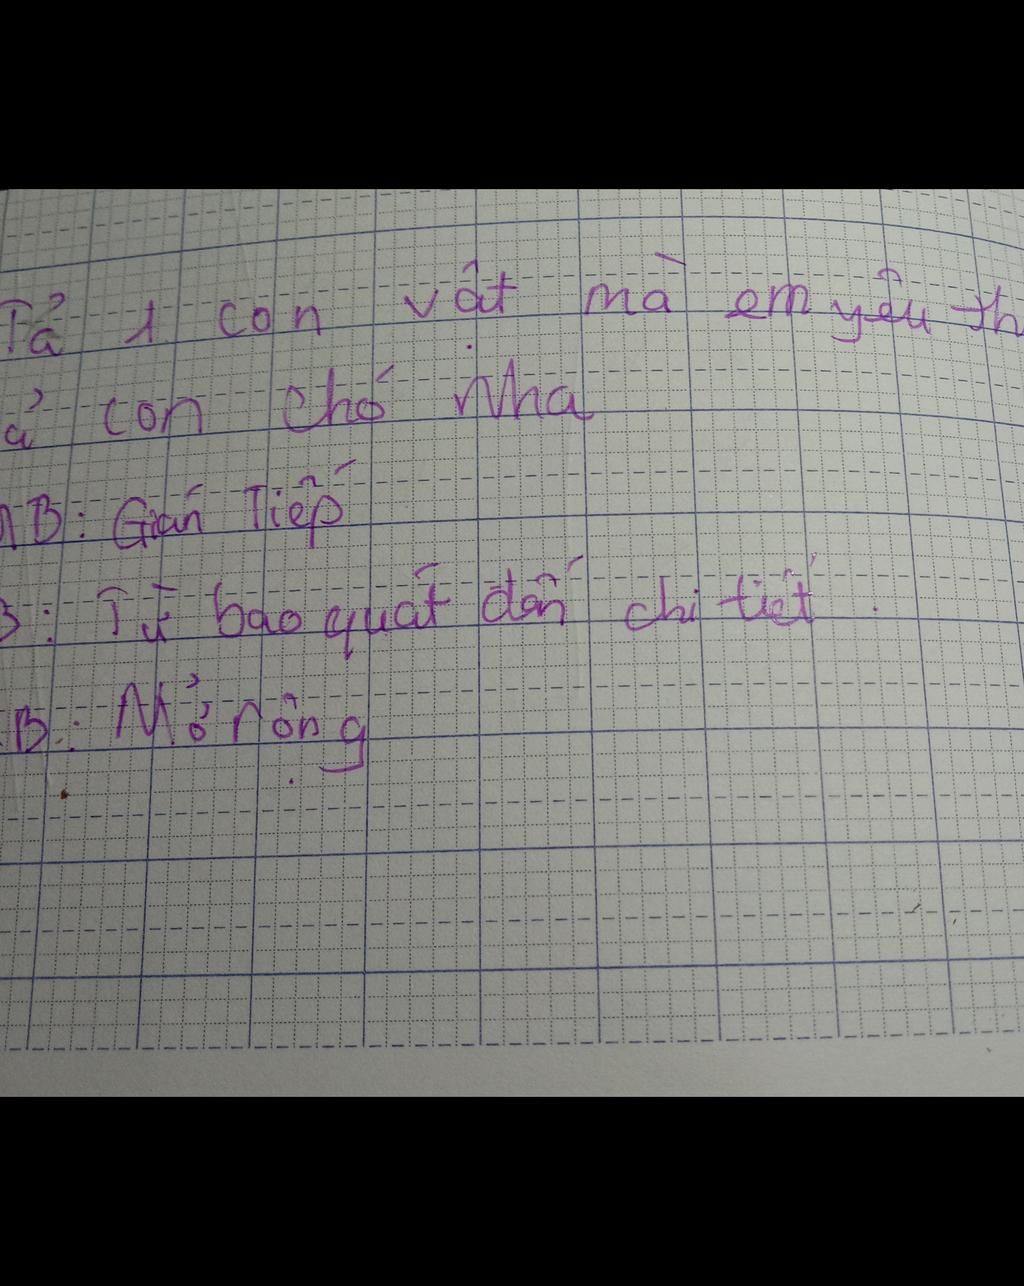 Tả 1 con vật mà em yêu th
ả con chó nha
B: Gián Tiếp
B: Từ bao quát đến chi tiết.
B: Mở rộng